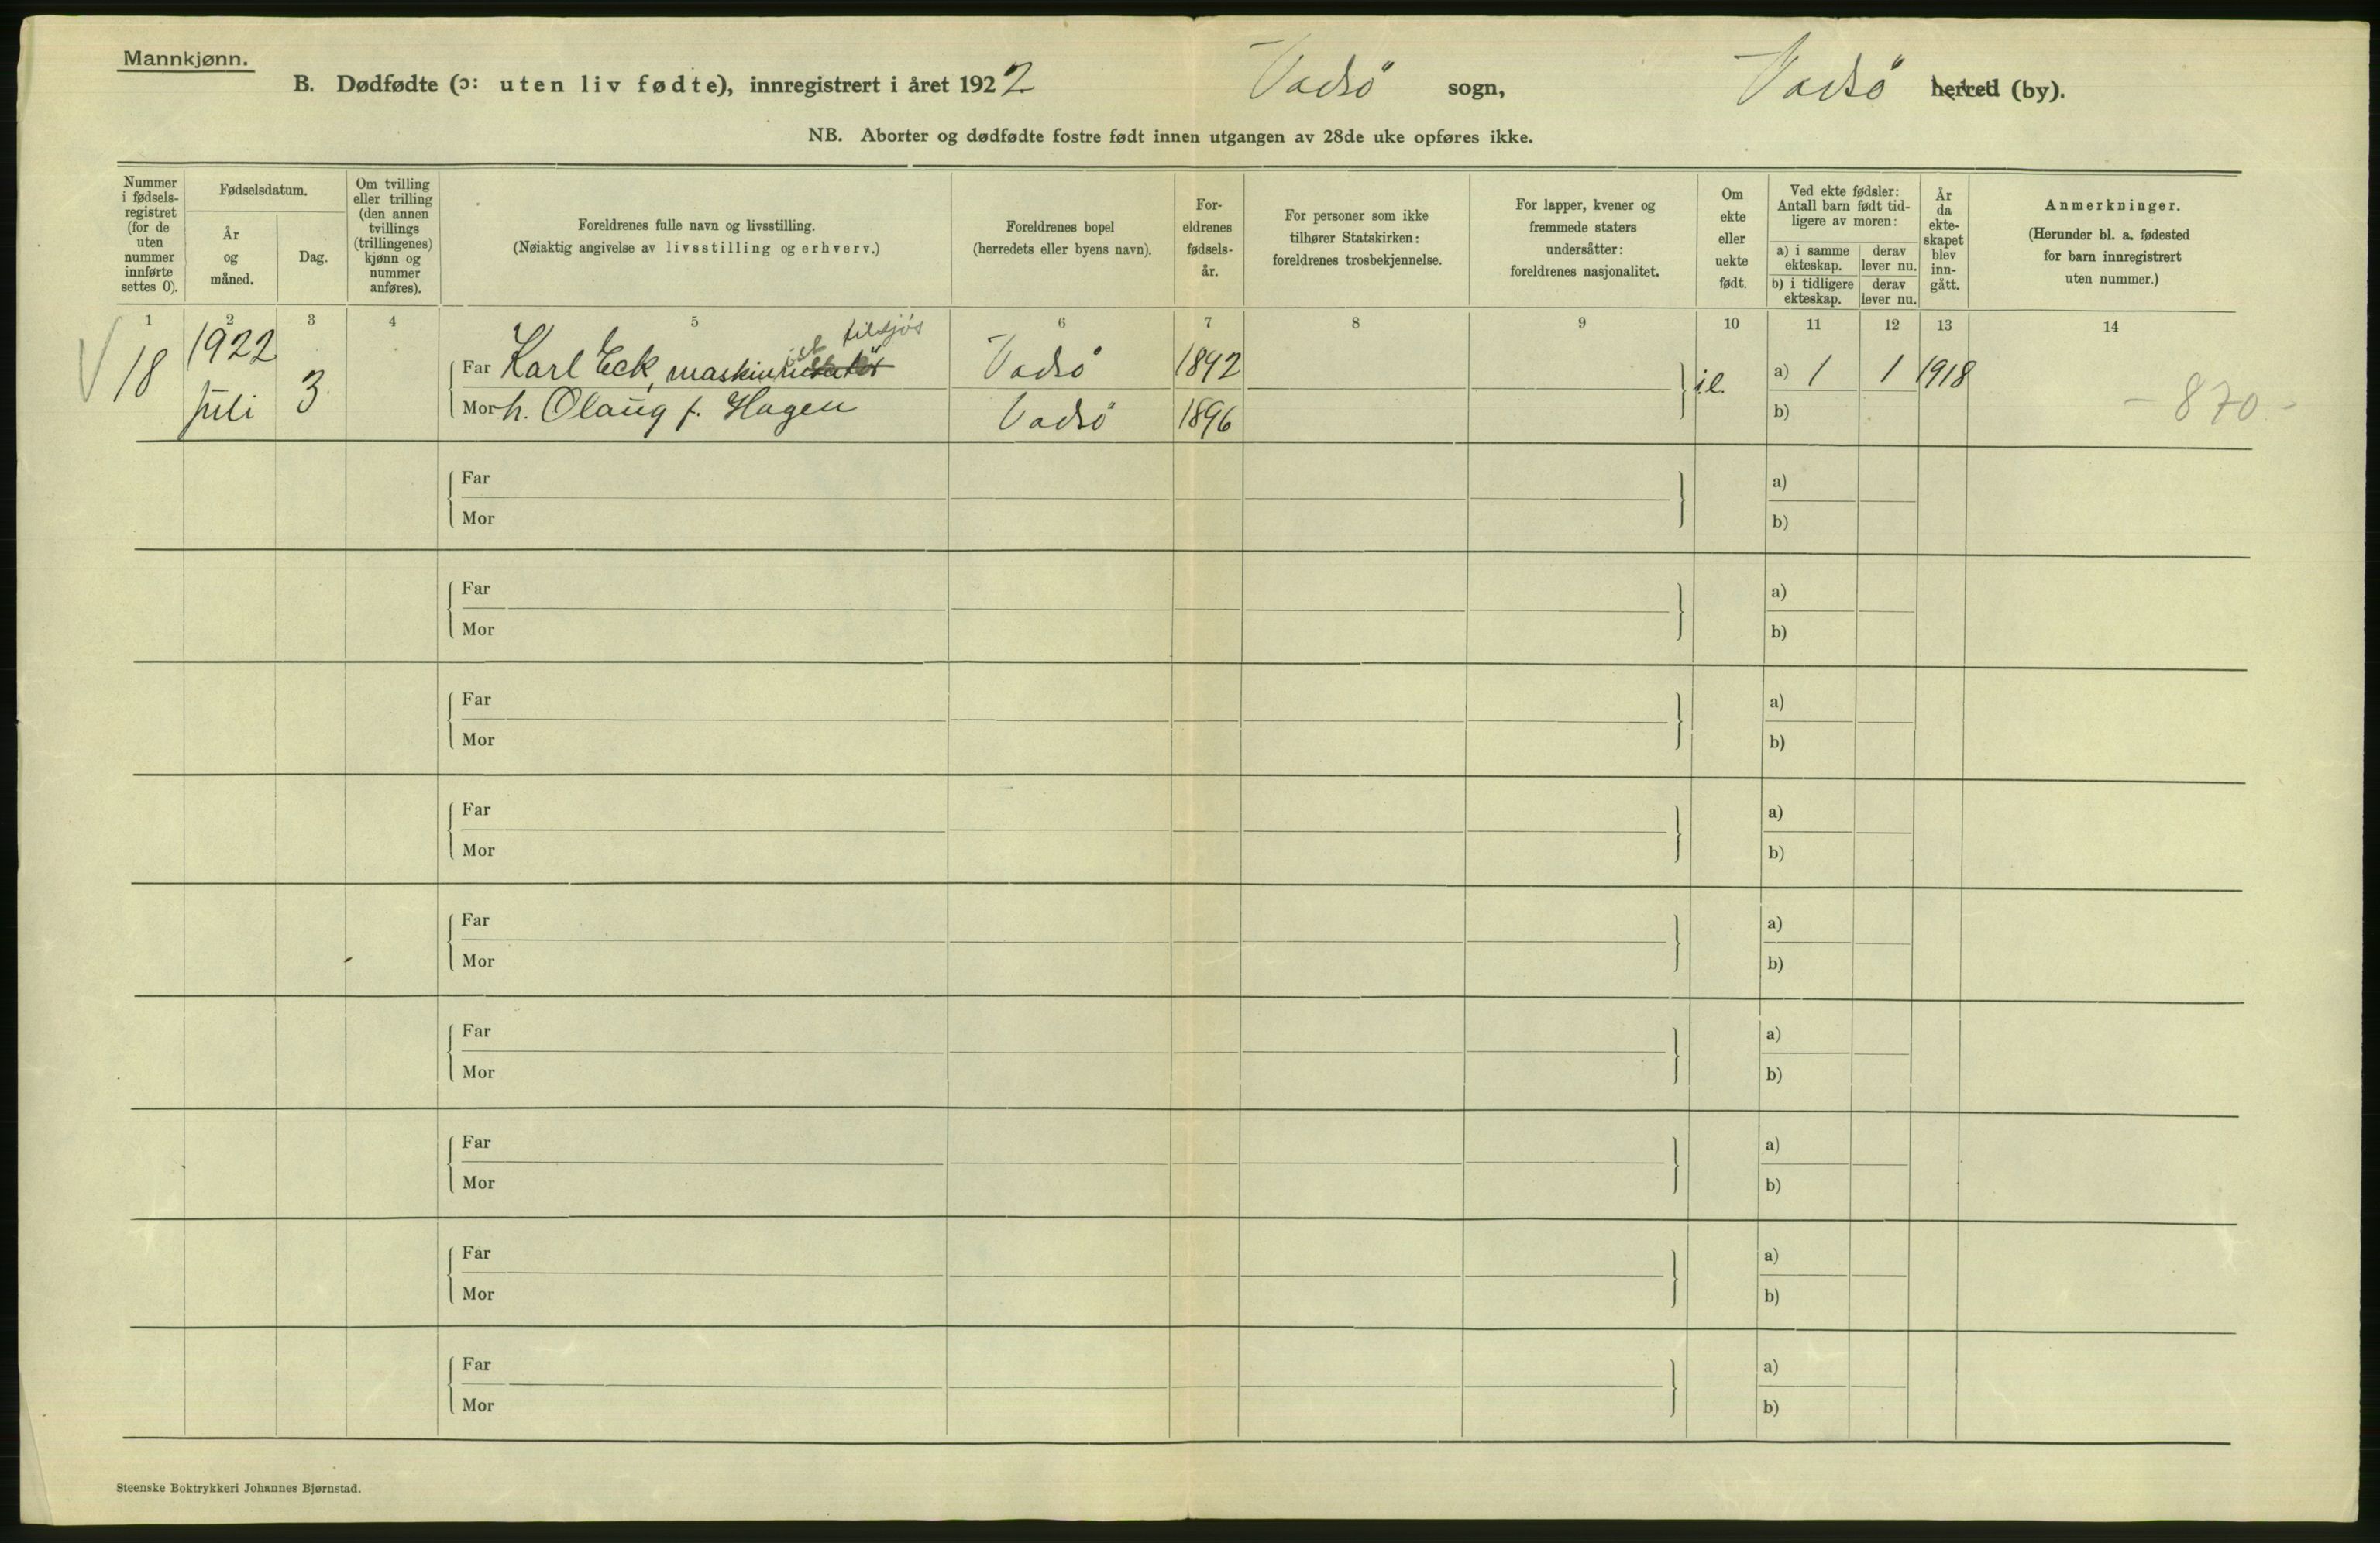 Mannkjønn.
B. Dødfødte (ɔ: uten liv fødte), innregistrert i året 1922 Vadsö sogn, Vadsö herred (by).
NB. Aborter og dødfødte fostre født innen utgangen av 28de uke opføres ikke.
Nummer
i fødsels-
registret
(for de
uten
nummer
innførte
settes 0).
Fødselsdatum.
År
og
måned.
Dag.
Om tvilling
eller trilling
(den annen
tvillings
(trillingenes)
kjønn og
nummer
anføres).
Foreldrenes fulle navn og livsstilling.
(Nøiaktig angivelse av livsstilling og erhverv.)
Foreldrenes bopel
(herredets eller byens navn).
For-
eldrenes
fødsels-
år.
For personer som ikke
tilhører Statskirken:
foreldrenes trosbekjennelse.
For lapper, kvener og
fremmede staters
undersåtter:
foreldrenes nasjonalitet.
Om
ekte
eller
uekte
født.
Ved ekte fødsler:
Antall barn født tid-
ligere av moren:
a) i samme
ekteskap.
derav
lever nu.
b) i tidligere
ekteskap.
derav
lever nu.
År
da
ekte-
skapet
blev
inn-
gått.
Anmerkninger.
(Herunder bl. a. fødested
for barn innregistrert
uten nummer.)
1 2 3 4 5 6 7 8 9 10 11 12 13 14
tilsjös
18 1922 Juli 3 Far Karl Eck, maskinist Vadsö 1892 a) 1 1 1918
Mor h. Olaug f. Hagen Vadsö 1896 b) - 870 -
Far a)
Mor b)
Far a)
Mor b)
Far a)
Mor b)
Far a)
Mor b)
Far a)
Mor b)
Far a)
Mor b)
Far a)
Mor b)
Far a)
Mor b)
Far a)
Mor b)
Steenske Boktrykkeri Johannes Bjørnstad.